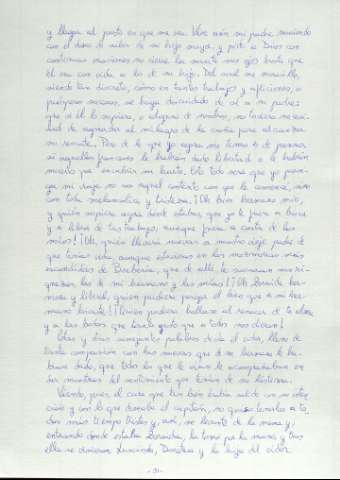 y llegue al punto en que me veo. Vive aún mi padre, muriendo
con el deseo de saber de su hijo mayor, y pide a Dios con
continuas oraciones no cierre la muerte sus ojos hasta que
él vea con vida a los de su hijo. Del cual me maravillo,
siendo tan discreto, cómo en tantos trabajos y aflicciones, o
prósperos sucesos, se haya descuidado de dar a su padre;
que si él lo supiera, o alguno de nosotros, no tuviera necesi-
dad de aguardar al milagro de la caña para alcanzar
su rescate. Pero de lo que yo agora me temo es de pensar
si aquellos franceses le habrán dado libertad o le habrán
muerto por encubrir su hurto. Esto todo será que yo prosi-
ga mi viaje no con aquel contento con que le comencé, sino
con toda melancolía y tristeza. ¡Oh buen hermano mío,
y quién supiera agora dónde estabas, que yo te fuera a buscar
y a librar de tus trabajos, aunque fuera a costa de los
míos! ¡Oh, quién llevara nuevas a nuestro viejo padre de
que tenías vida, aunque estuvieras en las mazmorras más
escondidas de Berbería, que de allí te sacaran sus ri-
quezas, las de mi hermano y las mías! ¡Oh Zoraida her-
mosa y liberal, quién pudiera pagar el bien que a mi her-
mano hiciste! ¡Quién pudiera hallarse al renacer de tu alma
y a las bodas que tanto gusto que a todos nos dieran!
Estas y otras semejantes palabras decía el oidor, lleno de
tanta compasión con las nuevas que de su hermano le ha-
bían dado, que todos los que le oían le acompañaban en
dar muestras del sentimiento que tenían de su lástima.
Viendo, pues, el cura que tan bien había salido con su inten-
ción y con lo que deseaba el capitán, no quiso tenerlos a to-
dos más tiempo tristes y, así, se levantó de la mesa y,
entrando donde estaba Zoraida, la tomó por la mano, y tras
ella se vinieron Luscinda, Dorotea y la hija del oidor.